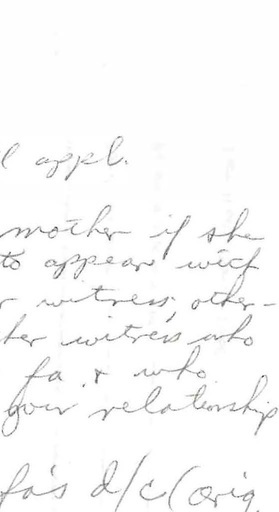 l appl.
mother if she
to appear with
r witness, other-
her witness who
fa & who
your relationship
fa's d/c (orig